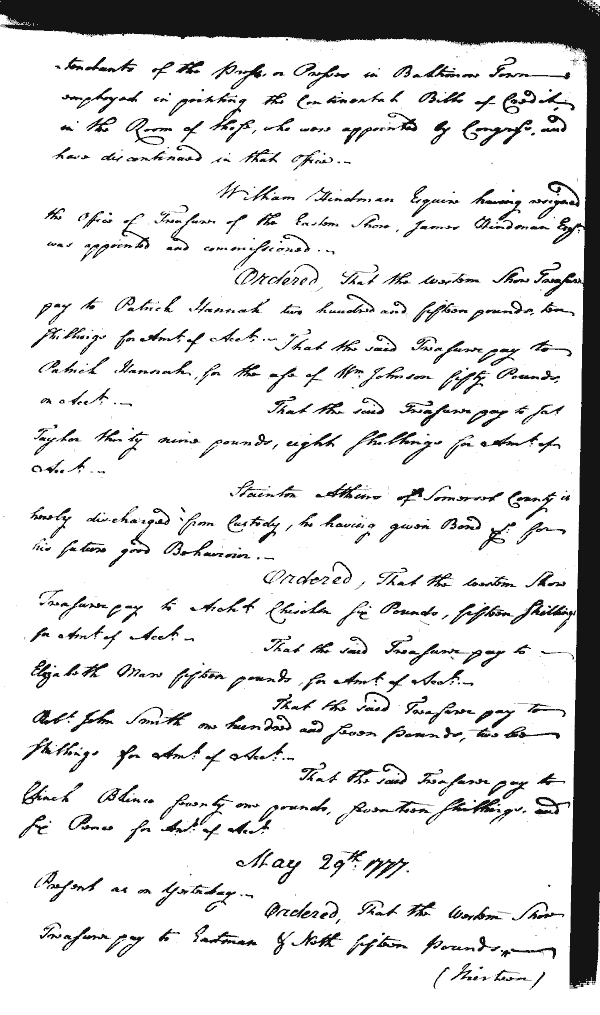 -tendants of the Press or Presses in Baltimore Town
employed in printing the Continental Bills of Credit,
in the Room of those, who were appointed by Congress, and
have discontinued in that office.
William Hindman Esquire having resigned
the Office of Treasurer of the Eastern Shore, James Hindman Esqr.
was appointed and commissioned.
Ordered, That the western Shore Treasurer
pay to Patrick Hannah two hundred and fifteen pounds, ten
Shillings for Amt. of Acct. That the said Treasurer pay to
Patrick Hannah, for the use of Wm. Johnson fifty Pounds,
on Acct.
That the said Treasurer pay to
Taylor thirty nine pounds, eight Shillings for Amt. of
Acct.
Stainton Atkins of Somerset County is
hereby discharged from Custody, he having given Bond &c. for
his future good Behaviour.
Ordered, That the western Shore
Treasurer pay to Archd. Chisholm Six Pounds, fifteen Shillings
for Amt. of Acct. That the said Treasurer pay to
Elizabeth fifteen pounds, for Amt. of Acct.
That the said Treasurer pay to
Robt. John Smith one hundred and seven pounds, twelve
Shillings for Amt. of Acct.
That the said Treasurer pay to
seventy one pounds, seventeen Shillings, and
Six Pence for Amt. of Acct.
May 29th. 1777.
Present as on Yesterday.
Ordered, That the Western Shore
Treasurer pay to Eastman & Neth fifteen Pounds,